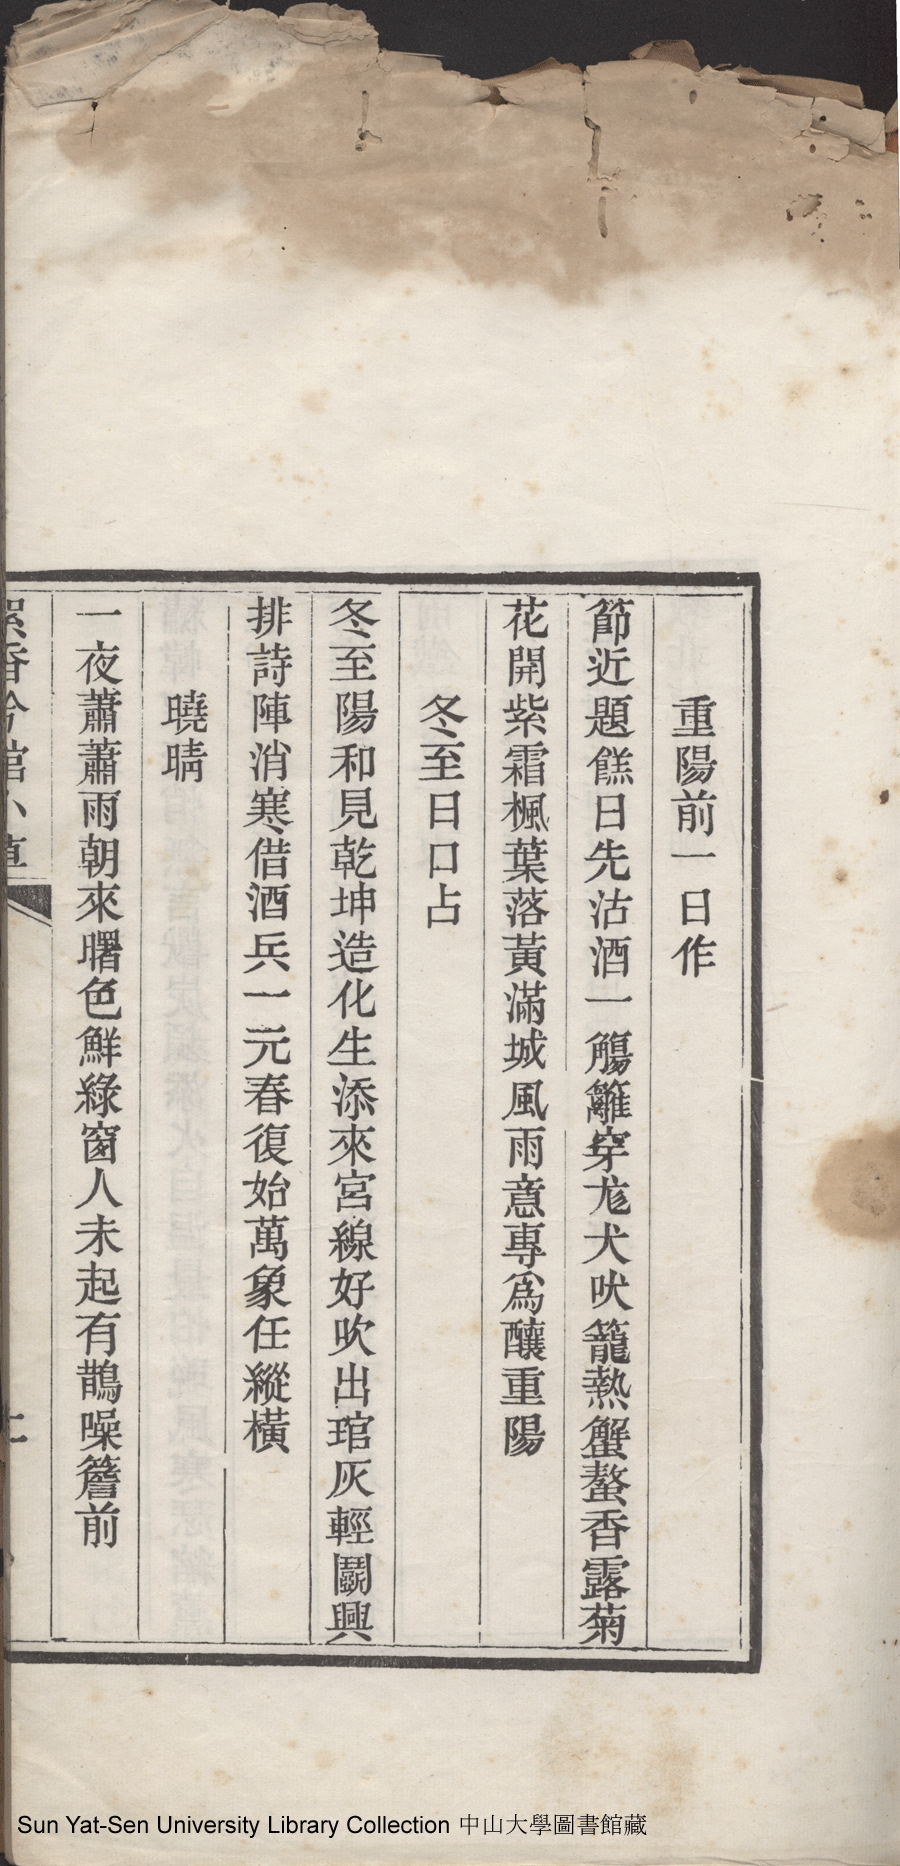 重陽前一日作
節近題餻日先沽酒一觴籬穿尨犬吠籠熱蟹螯香露菊
花開紫霜楓葉落黃滿城風雨意專爲釀重陽
冬至日口占
冬至陽和見乾坤造化生添來宮線好吹出琯灰輕鬭興
排詩陣消寒借酒兵一元春復始萬象任縱橫
曉晴
一夜蕭蕭雨朝來曙色鮮綠窗人未起有鵲噪簷前
絮香吟館小草
Sun Yat-Sen University Library Collection 中山大學圖書館藏